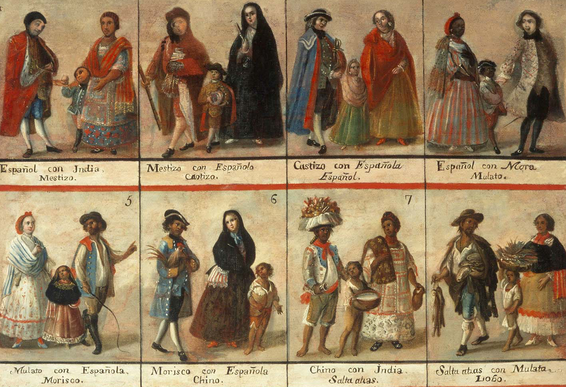 Español con India.
Mestizo.
Mestizo con Española
Castizo.
Castizo con Española
Español.
Español con Mora
Mulato.
5
6
7
Mulato con Española.
Morisco.
Morisco con Española
Chino.
Chino con India.
Salta atras.
Salta atras con Mulata.
Lobo.